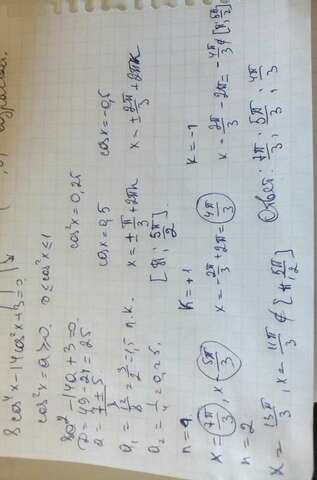 8 cos⁴x - 14 cos²x + 3 = 0
cos²x = a ≥ 0. 0 ≤ cos²x ≤ 1
8a² - 14a + 3 = 0
D = 49 - 24 = 25.
a = (7 ± 5)/8
a₁ = 12/8 = 3/2 = 1,5 п. к.
a₂ = 1/4 = 0,25.
cos²x = 0,25
cos x = 0,5
cos x = -0,5
x = ± π/3 + 2πk
x = ± 2π/3 + 2πk
[π; 5π/2]
n = 1
x = 7π/3, x = 5π/3
n = 2
x = 13π/3, x = 11π/3 ∉ [π; 5π/2]
K = +1
x = -2π/3 + 2π = 4π/3
K = -1
x = 2π/3 - 2π = -4π/3 ∉ [π; 5π/2]
Ответ: 7π/3; 5π/3; 4π/3